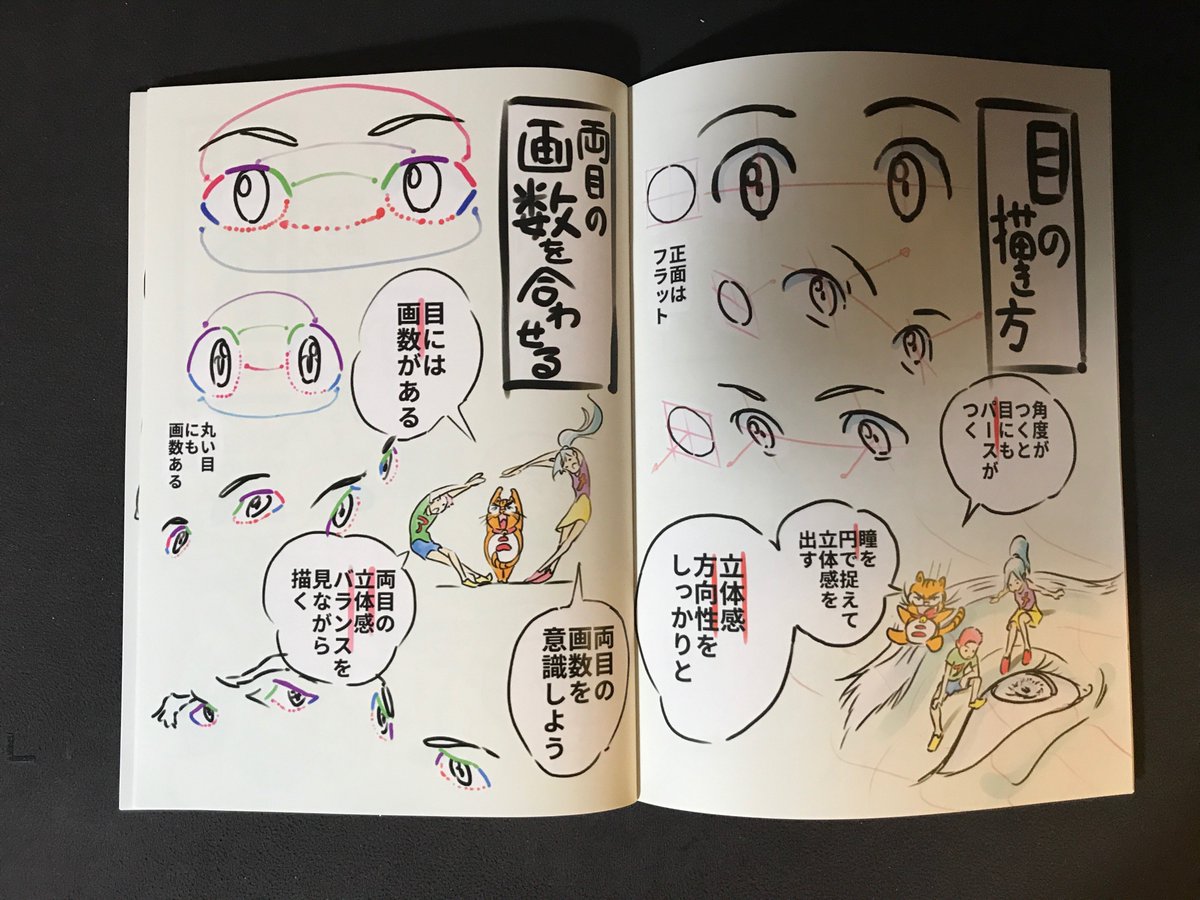 目の
描き方
正面は
フラット
角度が
つくと
目にも
パースが
つく
瞳を
円で捉えて
立体感を
出す
立体感
方向性を
しっかりと
両目の
画数を合わせる
目には
画数がある
丸い目
にも
画数ある
両目の
立体感
バランスを
見ながら
描く
両目の
画数を
意識しよう